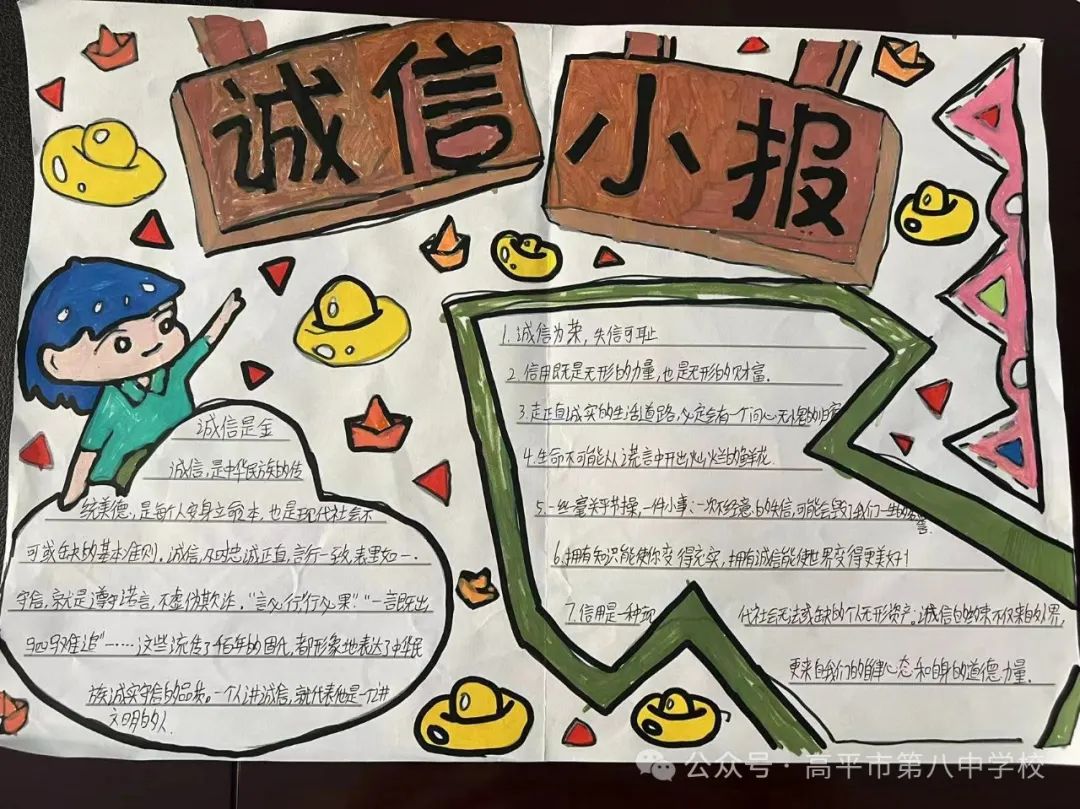 诚信
小报
诚信是金
诚信,是中华民族的传
统美德,是每个人安身立命之本,也是现代社会不
可或缺的基本准则。诚信,及忠诚正直,言行一致,表里如一.
守信,就是遵守诺言,不虚伪欺诈。"言必行行必果""一言既出
驷马难追"……这些流传了千百年的古话,都形象地表达了中华民
族诚实守信的品质。一个人讲诚信,就代表他是一个讲
文明的人.
1.诚信为荣,失信可耻
2.信用既是无形的力量,也是无形的财富.
3.走正直诚实的生活道路,必定会有一个问心无愧的归宿
4.生命不可能从谎言中开出灿烂的鲜花.
5.一丝一毫关乎节操,一件小事、一次不经意的失信,可能会毁了我们一生的名誉.
6.拥有知识能使你变得充实,拥有诚信能使世界变得更美好!
7.信用是一种现 代社会无法或缺的个人无形资产。诚信的约束不仅来自外界,
更来自我们的自律心态和自身的道德力量.
公众号·高平市第八中学校